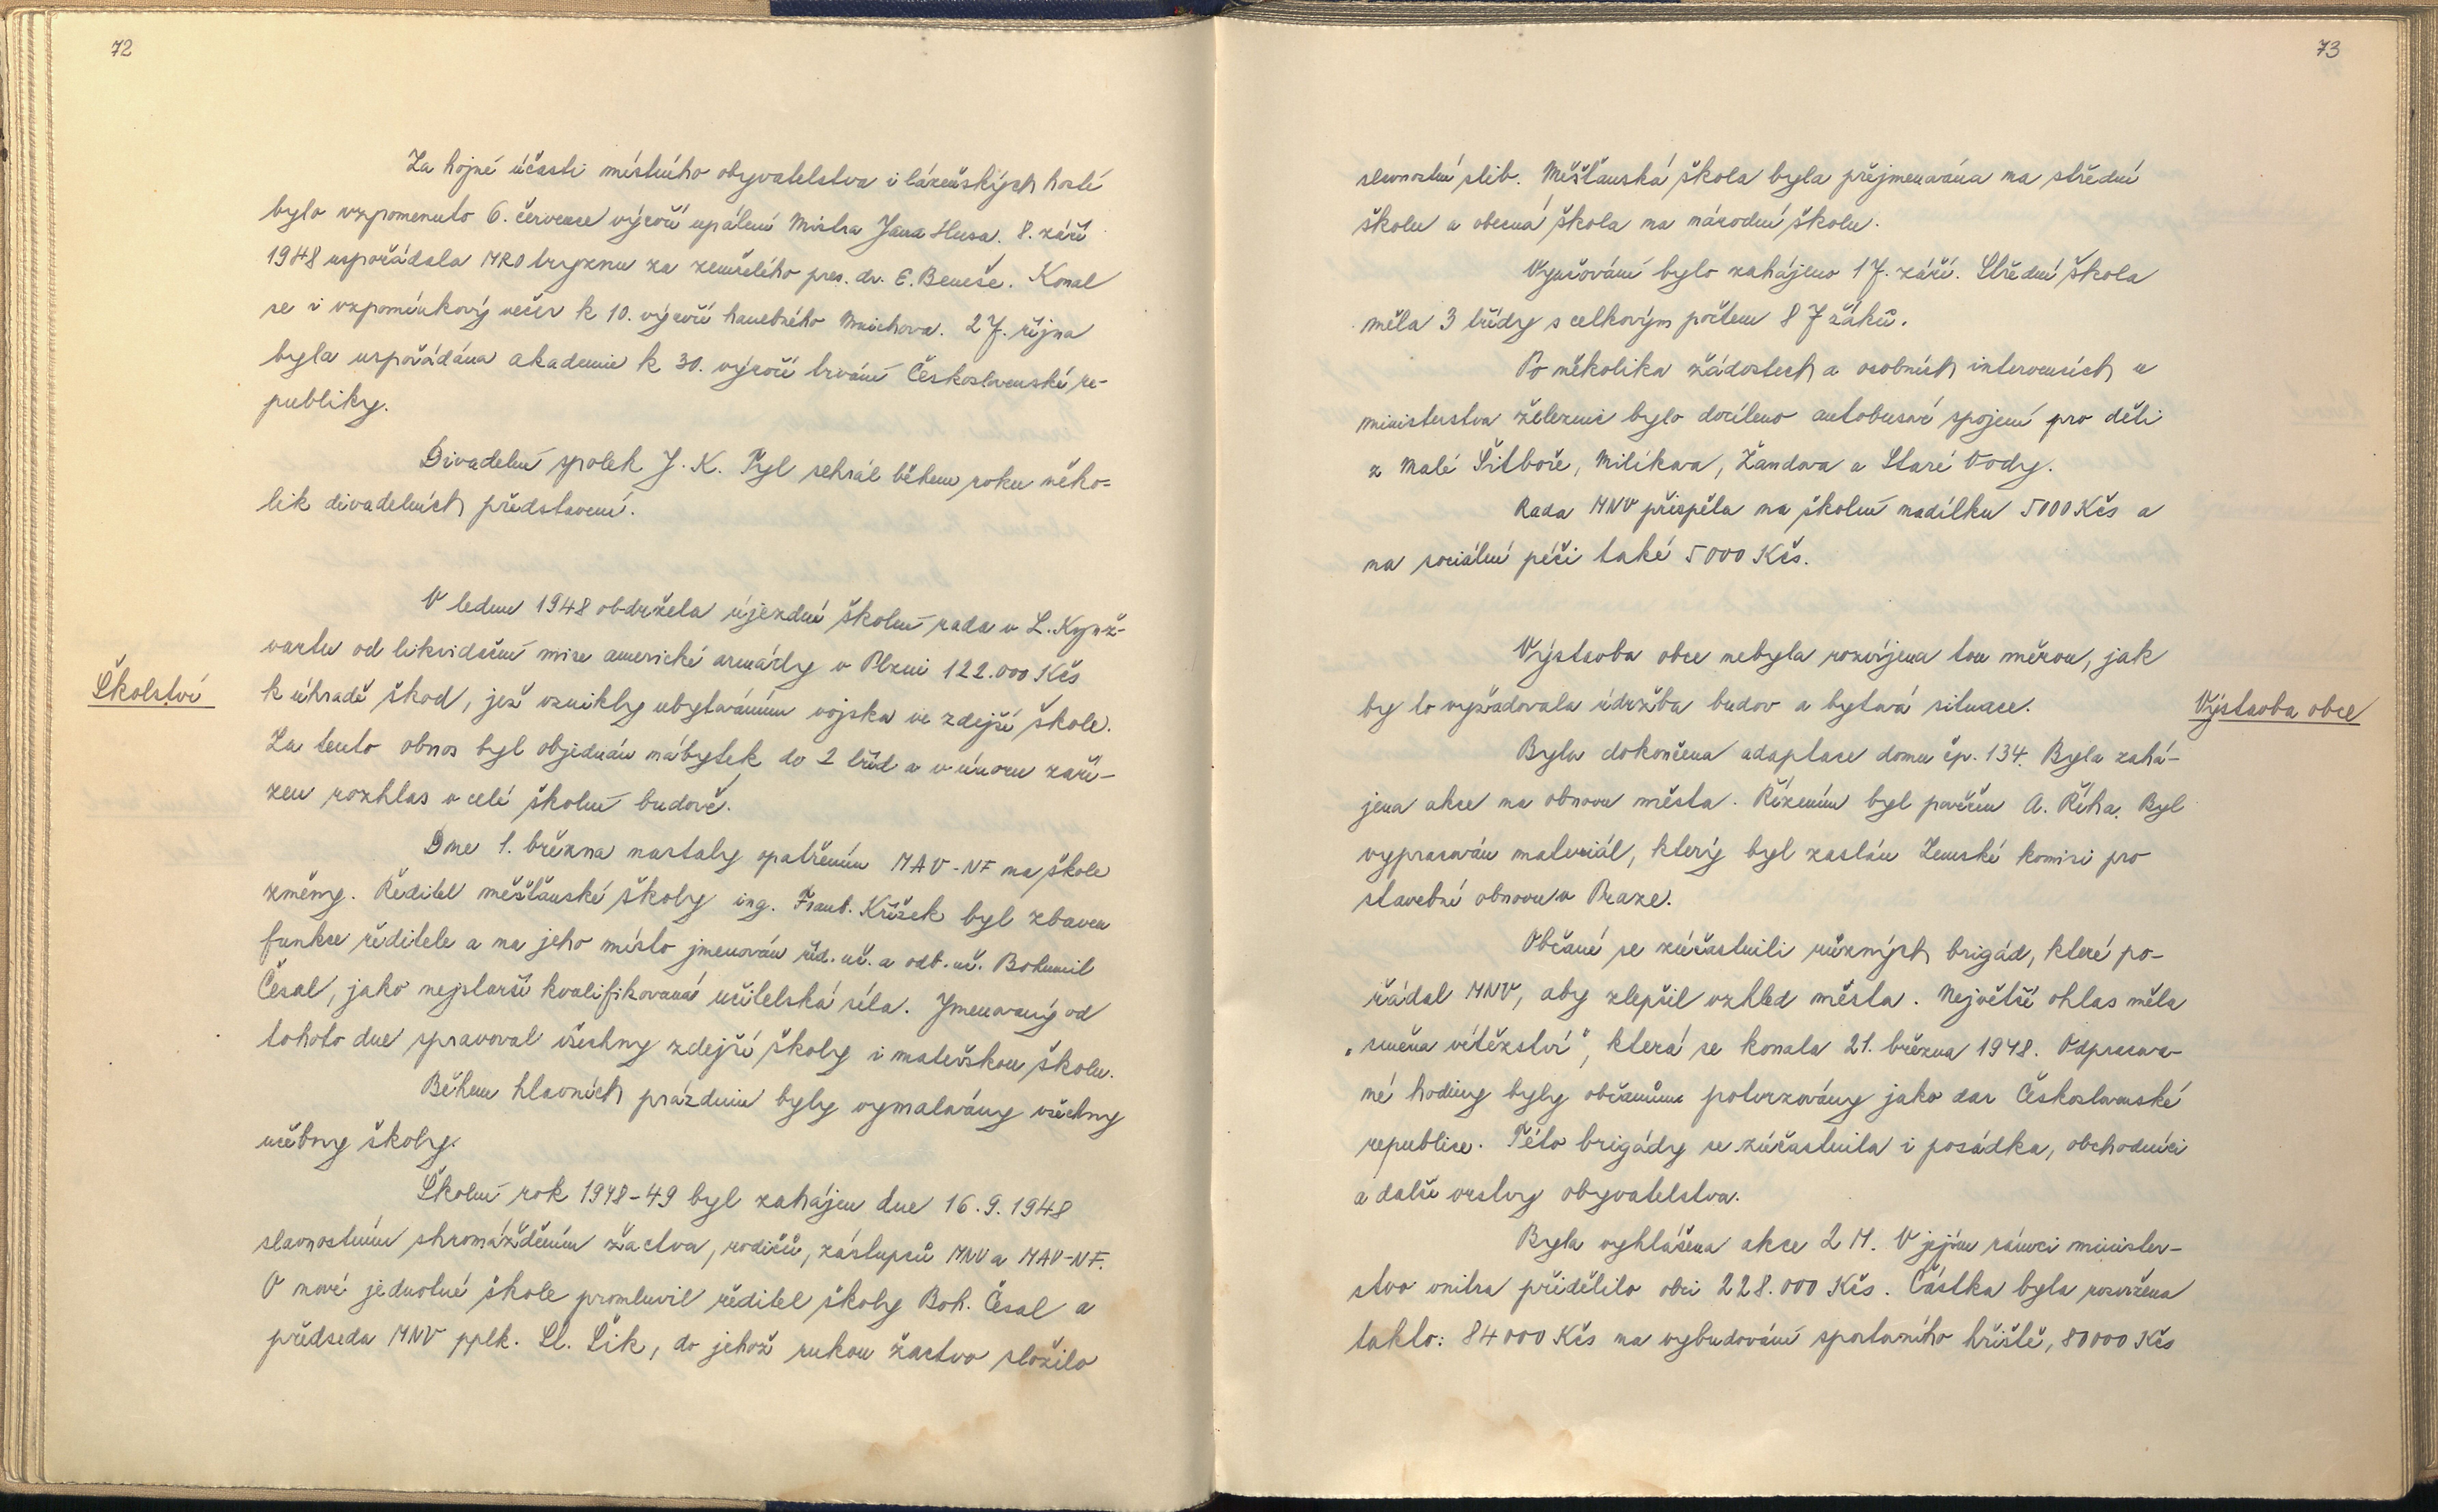 72
Za hojné účasti místního obyvatelstva i lázeňských hostí
bylo vzpomenuto 6. července výročí upálení Mistra Jana Husa. 8. září
1948 uspořádala MRO tryznu za zemřelého pres. dr. E. Beneše. Konal
se i vzpomínkový večer k 10. výročí hanebného Mnichova. 27. října
byla uspořádána akademie k 30. výročí trvání Československé re-
publiky.
Divadelní spolek J. K. Tyl sehrál během roku něko=
lik divadelních představení.
Školství
V lednu 1948 obdržela újezdní školní rada v L. Kynž-
vartu od likvidační mise americké armády v Plzni 122.000 Kčs
k úhradě škod, jež vznikly ubytováním vojska ve zdejší škole.
Za tento obnos byl objednán nábytek do 2 tříd a v únoru zaří-
zen rozhlas v celé školní budově.
Dne 1. března nastaly opatřením MAV-NF na škole
změny. Ředitel měšťanské školy ing. Frant. Křížek byl zbaven
funkce ředitele a na jeho místo jmenován říd. uč. a odb. uč. Bohumil
Česal, jako nejstarší kvalifikovaná učitelská síla. Jmenovaný od
tohoto dne spravoval všechny zdejší školy i mateřskou školu.
Během hlavních prázdnin byly vymalovány všechny
učebny školy.
Školní rok 1948-49 byl zahájen dne 16.9.1948
slavnostním shromážděním žactva, rodičů, zástupců MNV a MAV-NF.
O nové jednotné škole promluvil ředitel školy Boh. Česal a
předseda MNV pplk. Sl. Šik, do jehož rukou žactvo složilo
73
slavnostní slib. Měšťanská škola byla přejmenována na střední
školu a obecná škola na národní školu.
Vyučování bylo zahájeno 17. září. Střední škola
měla 3 třídy s celkovým počtem 87 žáků.
Po několika žádostech a osobních intervencích u
ministerstva železnic bylo docíleno autobusové spojení pro děti
z Malé Šitboře, Milíkova, Žandova a Staré Vody.
Rada MNV přispěla na školní nadílku 5000 Kčs a
na sociální péči také 5000 Kčs.
Výstavba obce nebyla rozvíjena tou měrou, jak
by to vyžadovala údržba budov a bytová situace.
Výstavba obce
Byla dokončena adaptace domu čp. 134. Byla zahá-
jena akce na obnovu města. Řízením byl pověřen A. Říha. Byl
vypracován materiál, který byl zaslán Zemské komisi pro
stavební obnovu v Praze.
Občané se zúčastnili různých brigád, které po-
řádal MNV, aby zlepšil vzhled města. Největší ohlas měla
„směna vítězství", která se konala 21. března 1948. Odpracova-
né hodiny byly občanům potvrzovány jako dar Československé
republice. Této brigády se zúčastnila i posádka, obchodníci
a další vrstvy obyvatelstva.
Byla vyhlášena akce 2 M. V jejím rámci minister-
stvo vnitra přidělilo obci 228.000 Kčs. Částka byla rozvržena
takto: 84000 Kčs na vybudování sportovního hřiště, 80000 Kčs